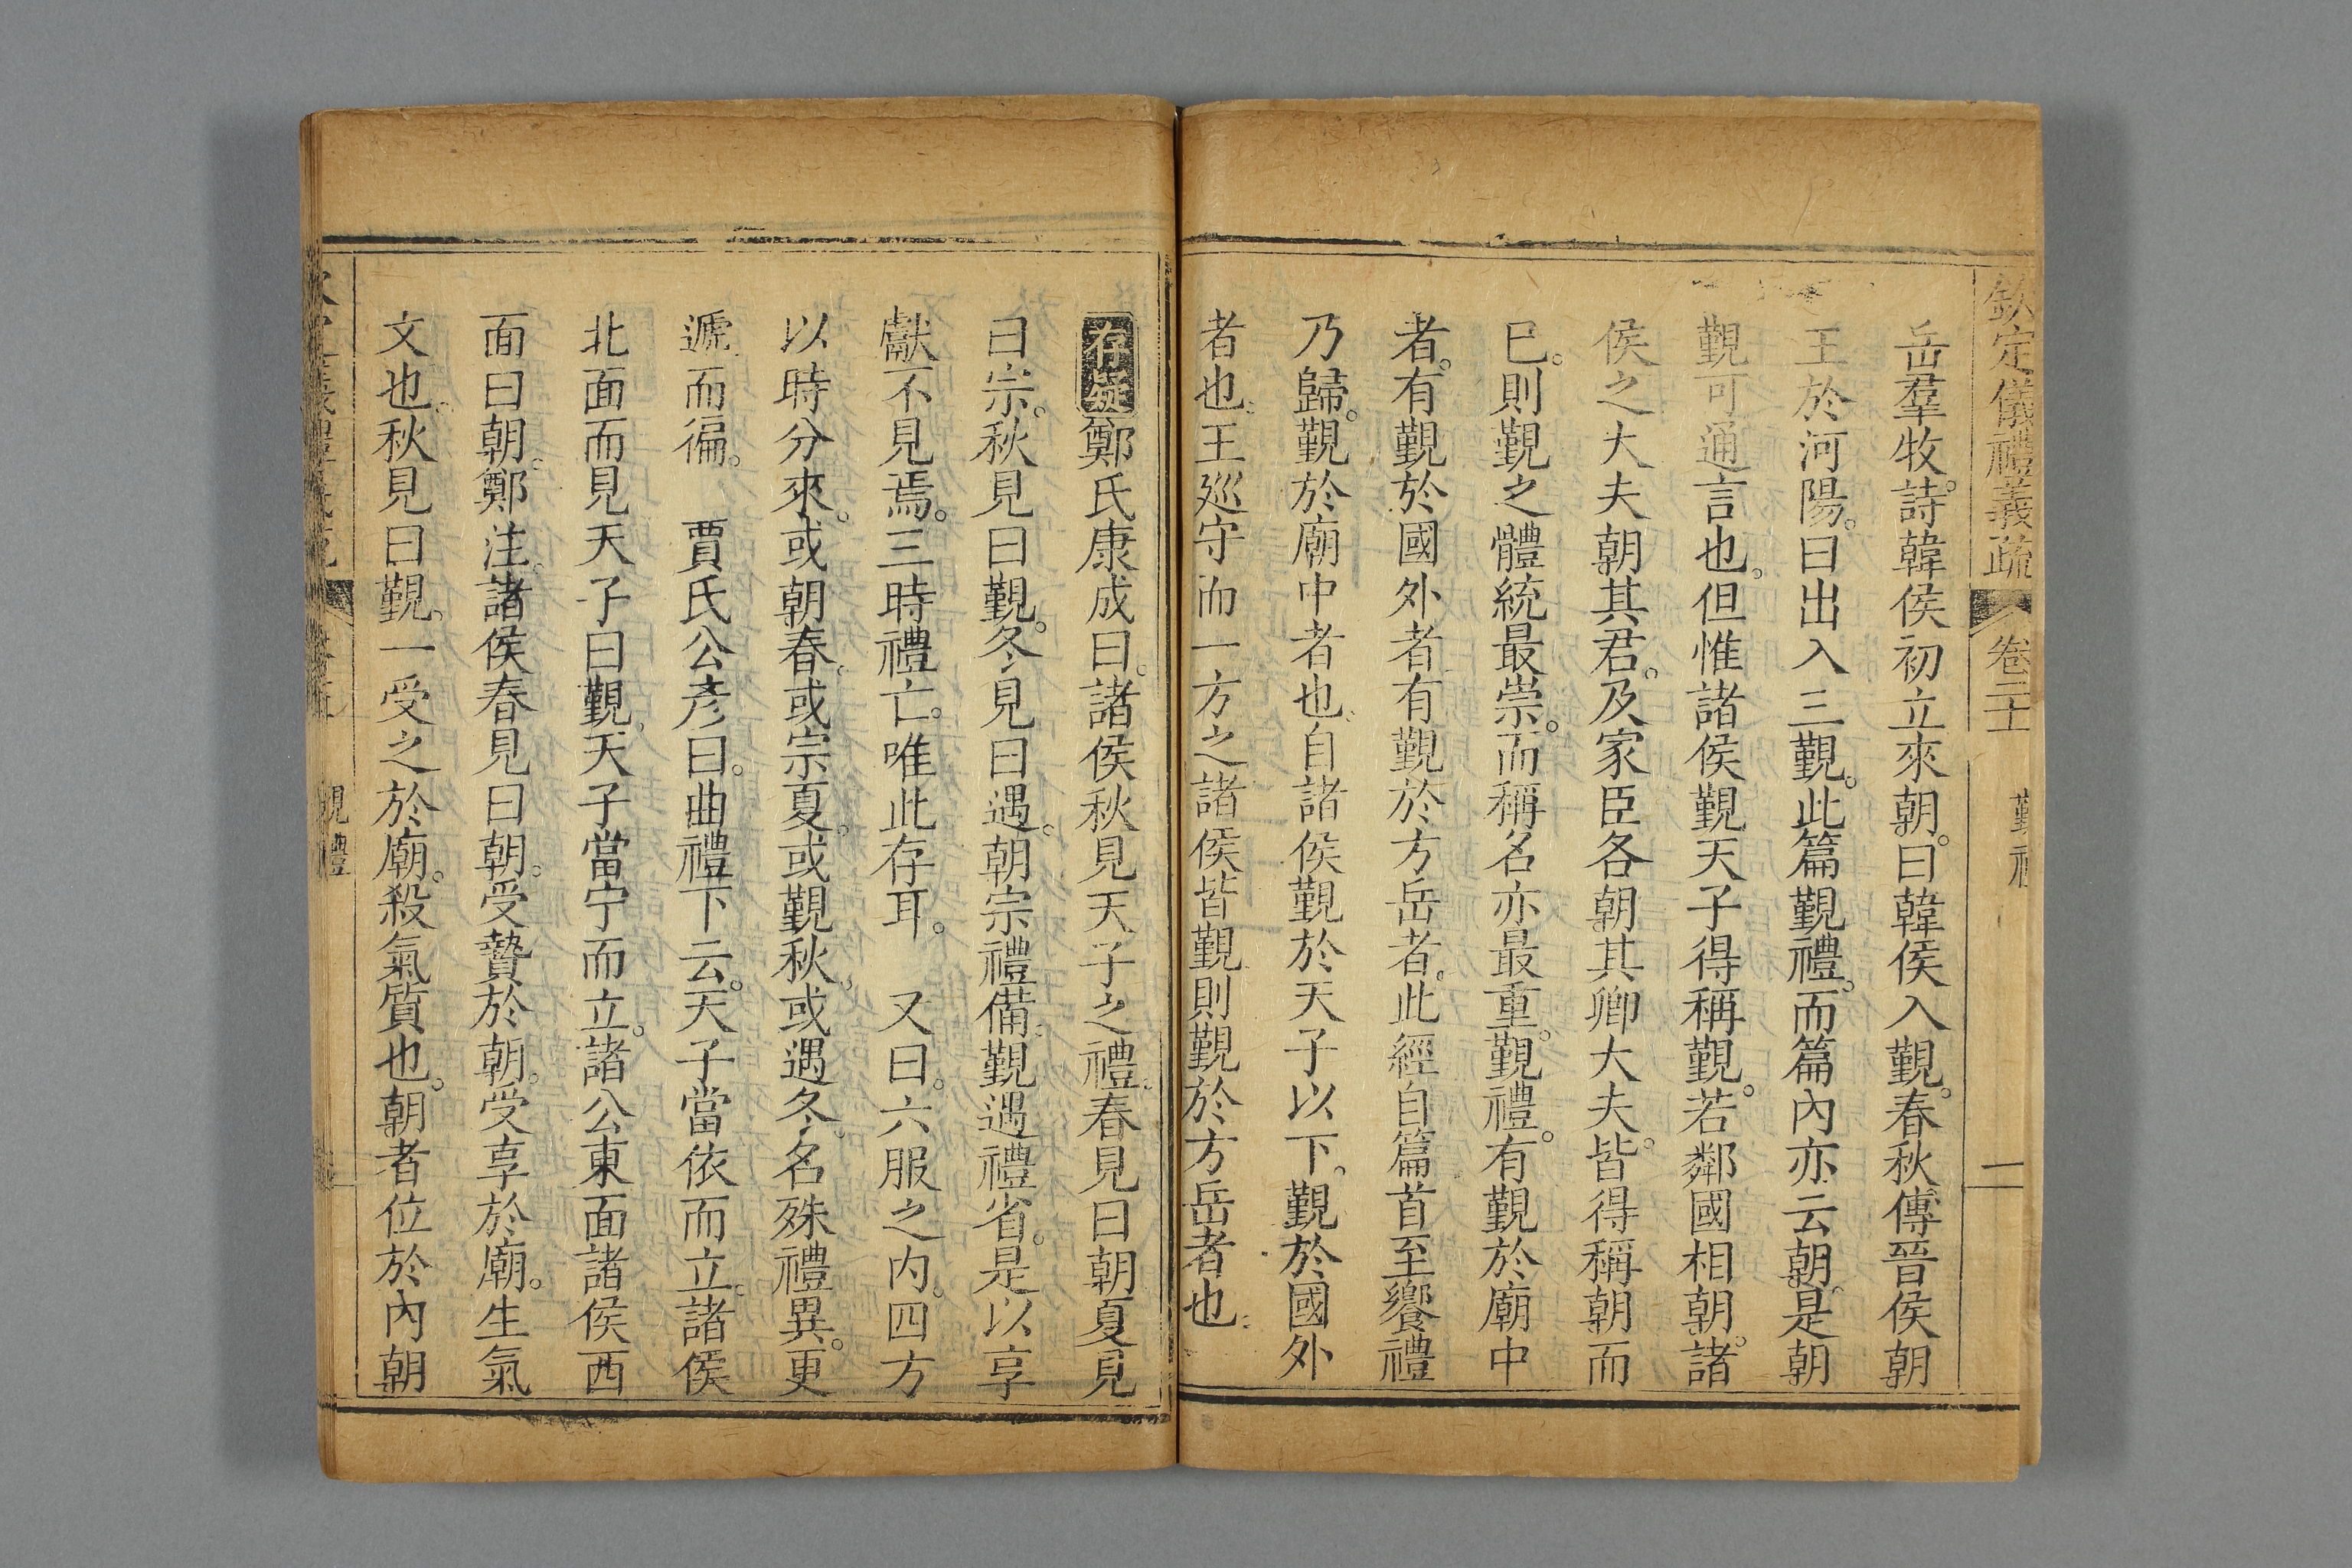 欽定儀禮義疏 卷二十 覲禮 二
岳羣牧。詩韓侯初立來朝。曰韓侯入覲。春秋傳晉侯朝
王於河陽。曰出入三覲。此篇覲禮。而篇內亦云朝。是朝
覲可通言也。但惟諸侯覲天子得稱覲。若鄰國相朝。諸
侯之大夫朝其君。及家臣各朝其卿大夫。皆得稱朝而
已。則覲之體統最崇。而稱名亦最重。覲禮。有覲於廟中
者。有覲於國外者有覲於方岳者。此經自篇首至饗禮
乃歸。覲於廟中者也。自諸侯覲於天子以下。覲於國外
者也。王巡守而一方之諸侯皆覲則覲於方岳者也。
存疑鄭氏康成曰。諸侯秋見天子之禮。春見曰朝夏見
曰宗。秋見曰覲。冬見曰遇。朝宗禮備。覲遇禮省。是以享
獻不見焉。三時禮亡。唯此存耳。 又曰。六服之內。四方
以時分來。或朝春。或宗夏。或覲秋。或遇冬。名殊禮異。更
遞而徧。 賈氏公彥曰。曲禮下云。天子當依而立。諸侯
北面而見天子曰覲。天子當宁而立。諸公東面諸侯西
面曰朝。鄭注。諸侯春見曰朝。受贄於朝。受享於廟。生氣
文也。秋見曰覲。一受之於廟。殺氣質也。朝者位於內朝
覲禮